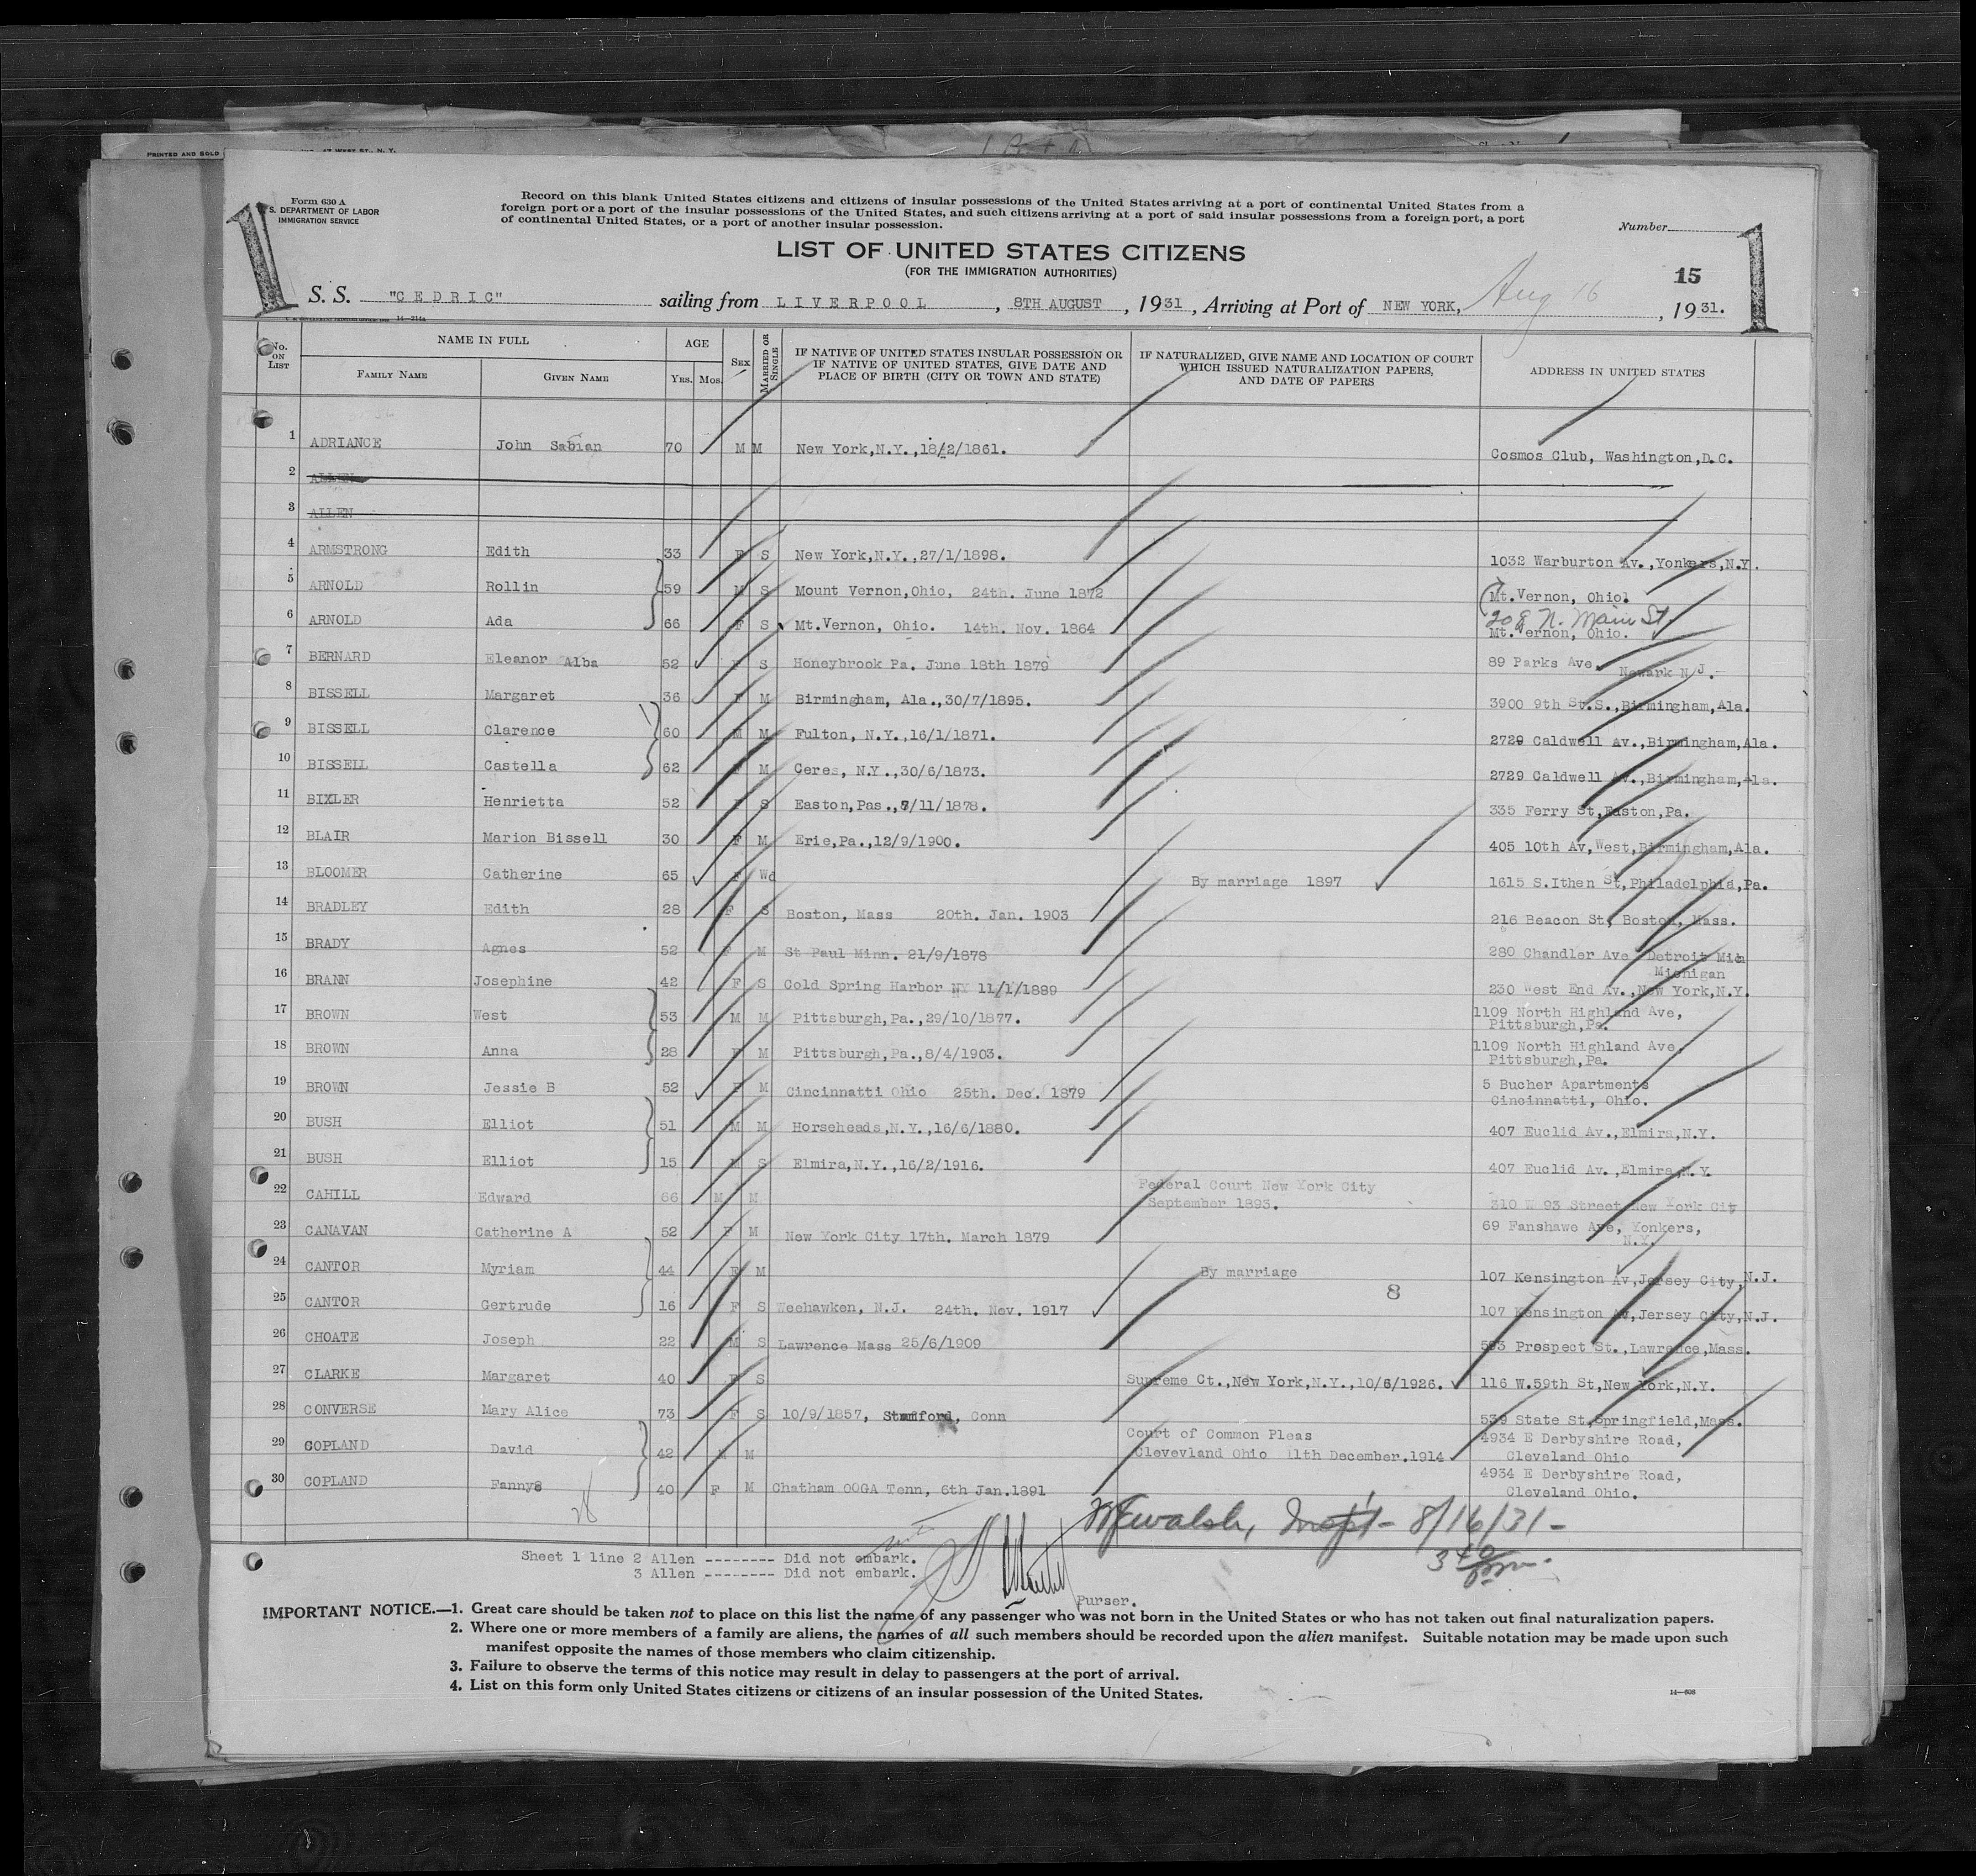 PRINTED AND SOLD
47 WEST ST., N. Y.
Form 630 A
S. DEPARTMENT OF LABOR
IMMIGRATION SERVICE
1
Record on this blank United States citizens and citizens of insular possessions of the United States arriving at a port of continental United States from a
foreign port or a port of the insular possessions of the United States, and such citizens arriving at a port of said insular possessions from a foreign port, a port
of continental United States, or a port of another insular possession.
Number
1
LIST OF UNITED STATES CITIZENS
(FOR THE IMMIGRATION AUTHORITIES)
15
S. S. "CEDRIC" sailing from LIVERPOOL, 8TH AUGUST, 1931, Arriving at Port of NEW YORK, Aug 16, 1931.
No. ON LIST
NAME IN FULL
FAMILY NAME
GIVEN NAME
AGE
YRS. MOS.
SEX
MARRIED OR SINGLE
IF NATIVE OF UNITED STATES INSULAR POSSESSION OR
IF NATIVE OF UNITED STATES, GIVE DATE AND
PLACE OF BIRTH (CITY OR TOWN AND STATE)
IF NATURALIZED, GIVE NAME AND LOCATION OF COURT
WHICH ISSUED NATURALIZATION PAPERS,
AND DATE OF PAPERS
ADDRESS IN UNITED STATES
1 ADRIANCE John Sabian 70 M M New York,N.Y.,18/2/1861. Cosmos Club, Washington,D.C.
2 ALLEN
3 ALLEN
4 ARMSTRONG Edith 33 F S New York,N.Y.,27/1/1898. 1032 Warburton Av.,Yonkers,N.Y.
5 ARNOLD Rollin 59 M S Mount Vernon,Ohio, 24th. June 1872 Mt.Vernon, Ohio.
208 N. Main St.
6 ARNOLD Ada 66 F S Mt.Vernon, Ohio. 14th. Nov. 1864 Mt.Vernon, Ohio.
7 BERNARD Eleanor Alba 52 F S Honeybrook Pa. June 18th 1879 89 Parks Ave. Newark N J.
8 BISSELL Margaret 36 F M Birmingham, Ala.,30/7/1895. 3900 9th St.S.,Birmingham,Ala.
9 BISSELL Clarence 60 M M Fulton, N.Y.,16/1/1871. 2729 Caldwell Av.,Birmingham,Ala.
10 BISSELL Castella 62 F M Ceres, N.Y.,30/6/1873. 2729 Caldwell Av.,Birmingham,Ala.
11 BIXLER Henrietta 52 F S Easton,Pas.,8/11/1878. 335 Ferry St,Easton,Pa.
12 BLAIR Marion Bissell 30 F M Erie,Pa.,12/9/1900. 405 10th Av,West,Birmingham,Ala.
13 BLOOMER Catherine 65 F Wd By marriage 1897 1615 S.Ithen St,Philadelphia,Pa.
14 BRADLEY Edith 28 F S Boston, Mass 20th. Jan. 1903 216 Beacon St, Boston, Mass.
15 BRADY Agnes 52 F M St Paul Minn. 21/9/1878 280 Chandler Ave Detroit Mich
Michigan
16 BRANN Josephine 42 F S Cold Spring Harbor NY 11/1/1889 230 West End Av.,New York,N.Y.
17 BROWN West 53 M M Pittsburgh,Pa.,29/10/1877. 1109 North Highland Ave,
Pittsburgh,Pa.
18 BROWN Anna 28 F M Pittsburgh,Pa.,8/4/1903. 1109 North Highland Ave,
Pittsburgh,Pa.
19 BROWN Jessie B 52 F M Cincinnatti Ohio 25th. Dec. 1879 5 Bucher Apartments
Cincinnatti, Ohio.
20 BUSH Elliot 51 M M Horseheads,N.Y.,16/6/1880. 407 Euclid Av.,Elmira,N.Y.
21 BUSH Elliot 15 M S Elmira,N.Y.,16/2/1916. 407 Euclid Av.,Elmira,N.Y.
22 CAHILL Edward 66 M M Federal Court New York City
September 1893. 310 W 93 Street New York Cit
23 CANAVAN Catherine A 52 F M New York City 17th. March 1879 69 Fanshawe Ave, Yonkers,
N.Y.
24 CANTOR Myriam 44 F M By marriage 107 Kensington Av,Jersey City,N.J.
8
25 CANTOR Gertrude 16 F S Weehawken, N.J. 24th. Nov. 1917 107 Kensington Av,Jersey City,N.J.
26 CHOATE Joseph 22 M S Lawrence Mass 25/6/1909 593 Prospect St.,Lawrence,Mass.
27 CLARKE Margaret 40 F S Supreme Ct.,New York,N.Y.,10/6/1926. 116 W.59th St,New York,N.Y.
28 CONVERSE Mary Alice 73 F S 10/9/1857, Stamford, Conn 539 State St,Springfield,Mass.
29 COPLAND David 42 M M Court of Common Pleas
Clevevland Ohio 11th December.1914 4934 E Derbyshire Road,
Cleveland Ohio
30 COPLAND Fanny 40 F M Chatham OOGA Tenn, 6th Jan.1891 4934 E Derbyshire Road,
Cleveland Ohio.
28
Walsh, Inspt- 8/16/31-
3 40 pm.
Sheet 1 line 2 Allen -------- Did not embark.
3 Allen -------- Did not embark.
Purser.
IMPORTANT NOTICE.—1. Great care should be taken not to place on this list the name of any passenger who was not born in the United States or who has not taken out final naturalization papers.
2. Where one or more members of a family are aliens, the names of all such members should be recorded upon the alien manifest. Suitable notation may be made upon such
manifest opposite the names of those members who claim citizenship.
3. Failure to observe the terms of this notice may result in delay to passengers at the port of arrival.
4. List on this form only United States citizens or citizens of an insular possession of the United States.
14—808